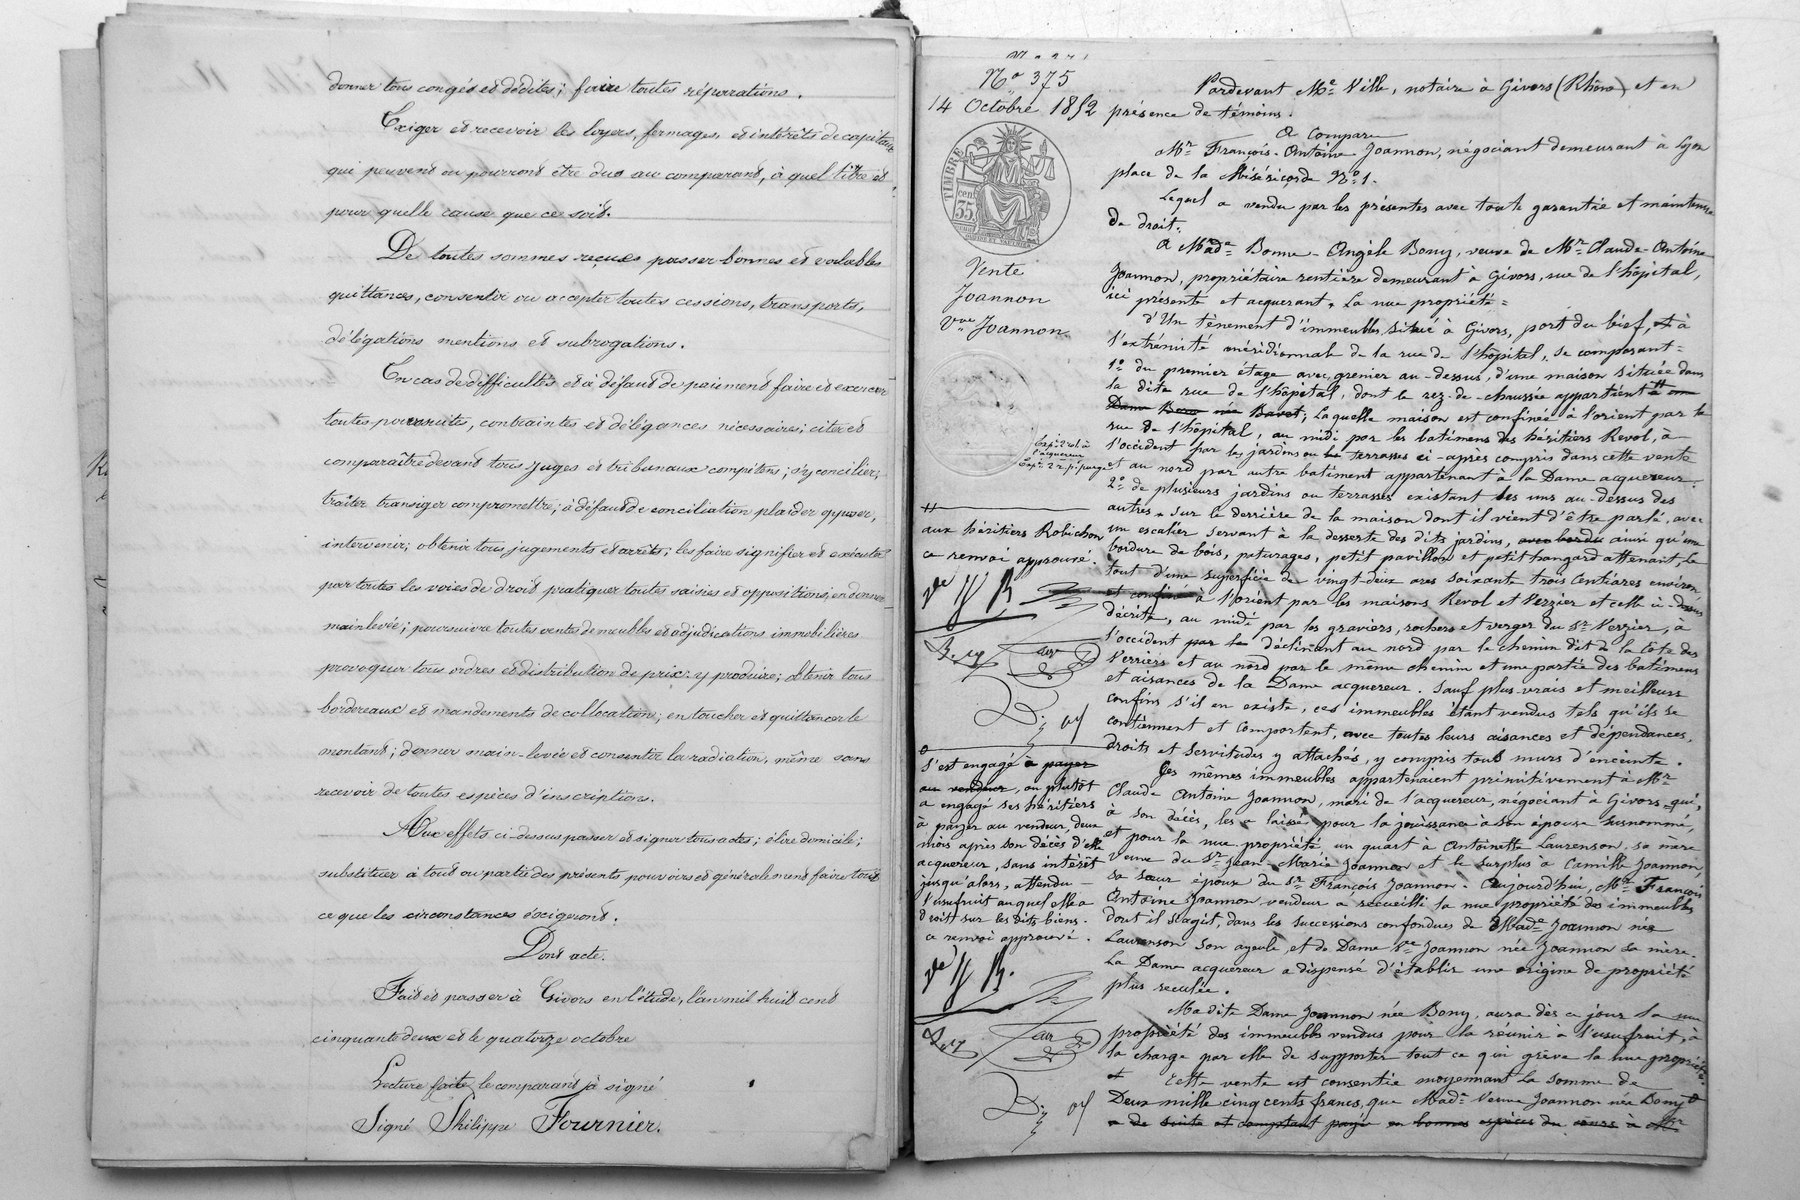 donner tous congés et dédites; faire toutes réparations.
Exiger et recevoir les loyers, fermages, et intérêts de capitaux
qui peuvent ou pourront être dus au comparant, à quel titre et
pour quelle cause que ce soit.
De toutes sommes reçues passer bonnes et valables
quittances, consentir ou accepter toutes cessions, transports,
délégations mentions et subrogations.
En cas de difficultés et à défaut de paiement faire et exercer
toutes poursuites, contraintes et diligences nécessaires; citer et
comparaître devant tous juges et tribunaux compétens; s'y concilier;
traiter transiger compromettre; à défaut de conciliation plaider opposer,
intervenir; obtenir tous jugements et arrêts; les faire signifier et exécuter
par toutes les voies de droit pratiquer toutes saisies et oppositions, en donner
mainlevée; poursuivre toutes ventes de meubles et adjudications immobilières
provoquer tous ordres et distribution de prix; y produire; obtenir tous
bordereaux et mandements de collocation; en toucher et quittancer le
montant; donner main-levée et consentir la radiation, même sans
recevoir de toutes espèces d'inscriptions.
Aux effets ci-dessus passer et signer tous actes; élire domicile;
substituer à tout ou partie des présents pouvoirs et généralement faire tout
ce que les circonstances éxigeront.
Dont acte.
Fait et passer à Givors en l'étude, l'an mil huit cent
cinquante deux et le quatorze octobre
Lecture faite le comparant à signé
Signé Philippe Fournier.
No 375
14 Octobre 1852
TIMBRE
35 cen
Vente
Joannon
Vve Joannon
aux héritiers Robichon
ce renvoi approuvé.
s'est engagé à payer
au vendeur, ou plutôt
a engagé ses héritiers
à payer au vendeur, deux
mois après son décès d'elle
acquereur, sans intérêt
jusqu'alors, attendu
l'usufruit auquel elle a
droit sur les dits biens.
ce renvoi approuvé.
Pardevant Me Ville, notaire à Givors (Rhône) et en
présence de témoins.
A Comparu
Mr François-Antoine Joannon, négociant demeurant à Lyon
place de la Miséricorde No 1.
Lequel a vendu par les présentes avec toute garantie et maintenue
de droit.
A Made Bonne-Angèle Bony, veuve de Mr Claude-Antoine
Joannon, propriétaire rentière demeurant à Givors, rue de l'hôpital,
ici présente et acquerant, La nue propriété =
d'Un tènement d'immeubles situé à Givors, port du bief, et à
l'extrémité méridionnale de la rue de l'hôpital, se composant =
1o du premier étage avec grenier au-dessus, d'une maison située dans
la dite rue de l'hôpital, dont le rez-de-chaussée appartient à une
Dame née Bavot; laquelle maison est confinée à l'orient par la
rue de l'hôpital, au midi par les batimens des héritiers Revol, à
l'occident par les jardins ou terrasses ci-après compris dans cette vente
et au nord par autre batiment appartenant à la Dame acquereur.
2o de plusieurs jardins ou terrasses existant les uns au-dessus des
autres, sur le derrière de la maison dont il vient d'être parlé, avec
un escalier servant à la desserte des dits jardins, avec bordu ainsi qu'une
bordure de bois, paturages, petit pavillon et petit hangard attenant, le
tout d'une superficie de vingt-deux ares soixante trois centiares environ,
et confiné à l'orient par les maisons Revol et Verzier et celle ci-dessus
décrite, au midi par les graviers, rochers et verger du Sr Verzier, à
l'occident par le déclinant au nord par le chemin dit de la Côte des
Verriers et au nord par le même chemin et une partie des batimens
et aisances de la Dame acquereur. Sauf plus vrais et meilleurs
confins s'il en existe, ces immeubles étant vendus tels qu'ils se
contiennent et comportent, avec toutes leurs aisances et dépendances,
droits et servitudes y attachés, y compris tous murs d'enceinte.
Ces mêmes immeubles appartenaient primitivement à Mr
Claude Antoine Joannon, mari de l'acquereur, négociant à Givors, qui,
à son décès, les a laissé pour la jouissance à son épouse susnommé,
et pour la nue propriété un quart à Antoinette Laurenson, sa mère
veuve du Sr Jean-Marie Joannon et le surplus à Camille Joannon,
sa sœur épouse du Sr François Joannon. Aujourd'hui, Mr François
Antoine Joannon vendeur a recueilli la nue propriété des immeubles
dont il s'agit, dans les successions confondues de Made Joannon née
Laurenson son ayeule, et de Dame Ve Joannon née Joannon sa mère.
La Dame acquereur a dispensé d'établir une origine de propriété
plus reculée.
Ma dite Dame Joannon née Bony, aura dès ce jour la nue
propriété des immeubles vendus pour la réunir à l'usufruit, à
la charge par elle de supporter tout ce qui grève la nue propriété.
Cette vente est consentie moyennant la somme de
Deux mille cinq cents francs, que Made Veuve Joannon née Bony
a de suite et comptant payé en bonnes espèces du cours à Mr